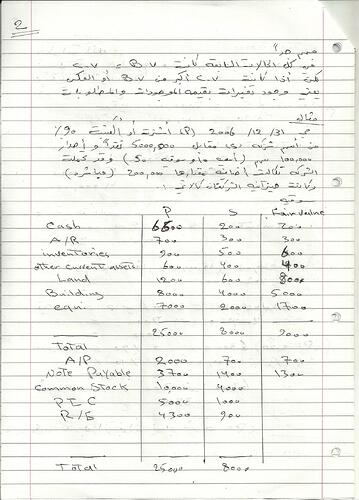 2
مهم جداً
في كل الحالات السابقة كانت C.V = B.V
لكن إذا كانت C.V أكبر من B.V أو العكس
يعني وجود تغيرات بقيمة الموجودات والمطلوبات
مثال
في 31/12/2006 (P) اشترت أو اكتسبت 90%
من أسهم شركة (S) مقابل 5000,000 نقداً و إصدار
100,000 سهم (القيمة السوقية 50) وقد تحملت
الشركة تكاليف إضافية مقدارها 200,000 (مباشرة)
وكانت ميزانية الشركتان كالآتي :
سوقية
P S Fair value
Cash 6500 200 200
A/R 700 300 300
inventories 900 500 600
other current assets 600 400 400
Land 1200 600 800
Building 8000 4000 5000
equi. 7000 2000 1700
25000 8000 9000
Total
A/P 2000 700 700
Note Payable 3700 1400 1300
Common Stock 10,000 4000
PIC 5000 1000
R/E 4300 900
Total 25000 8000